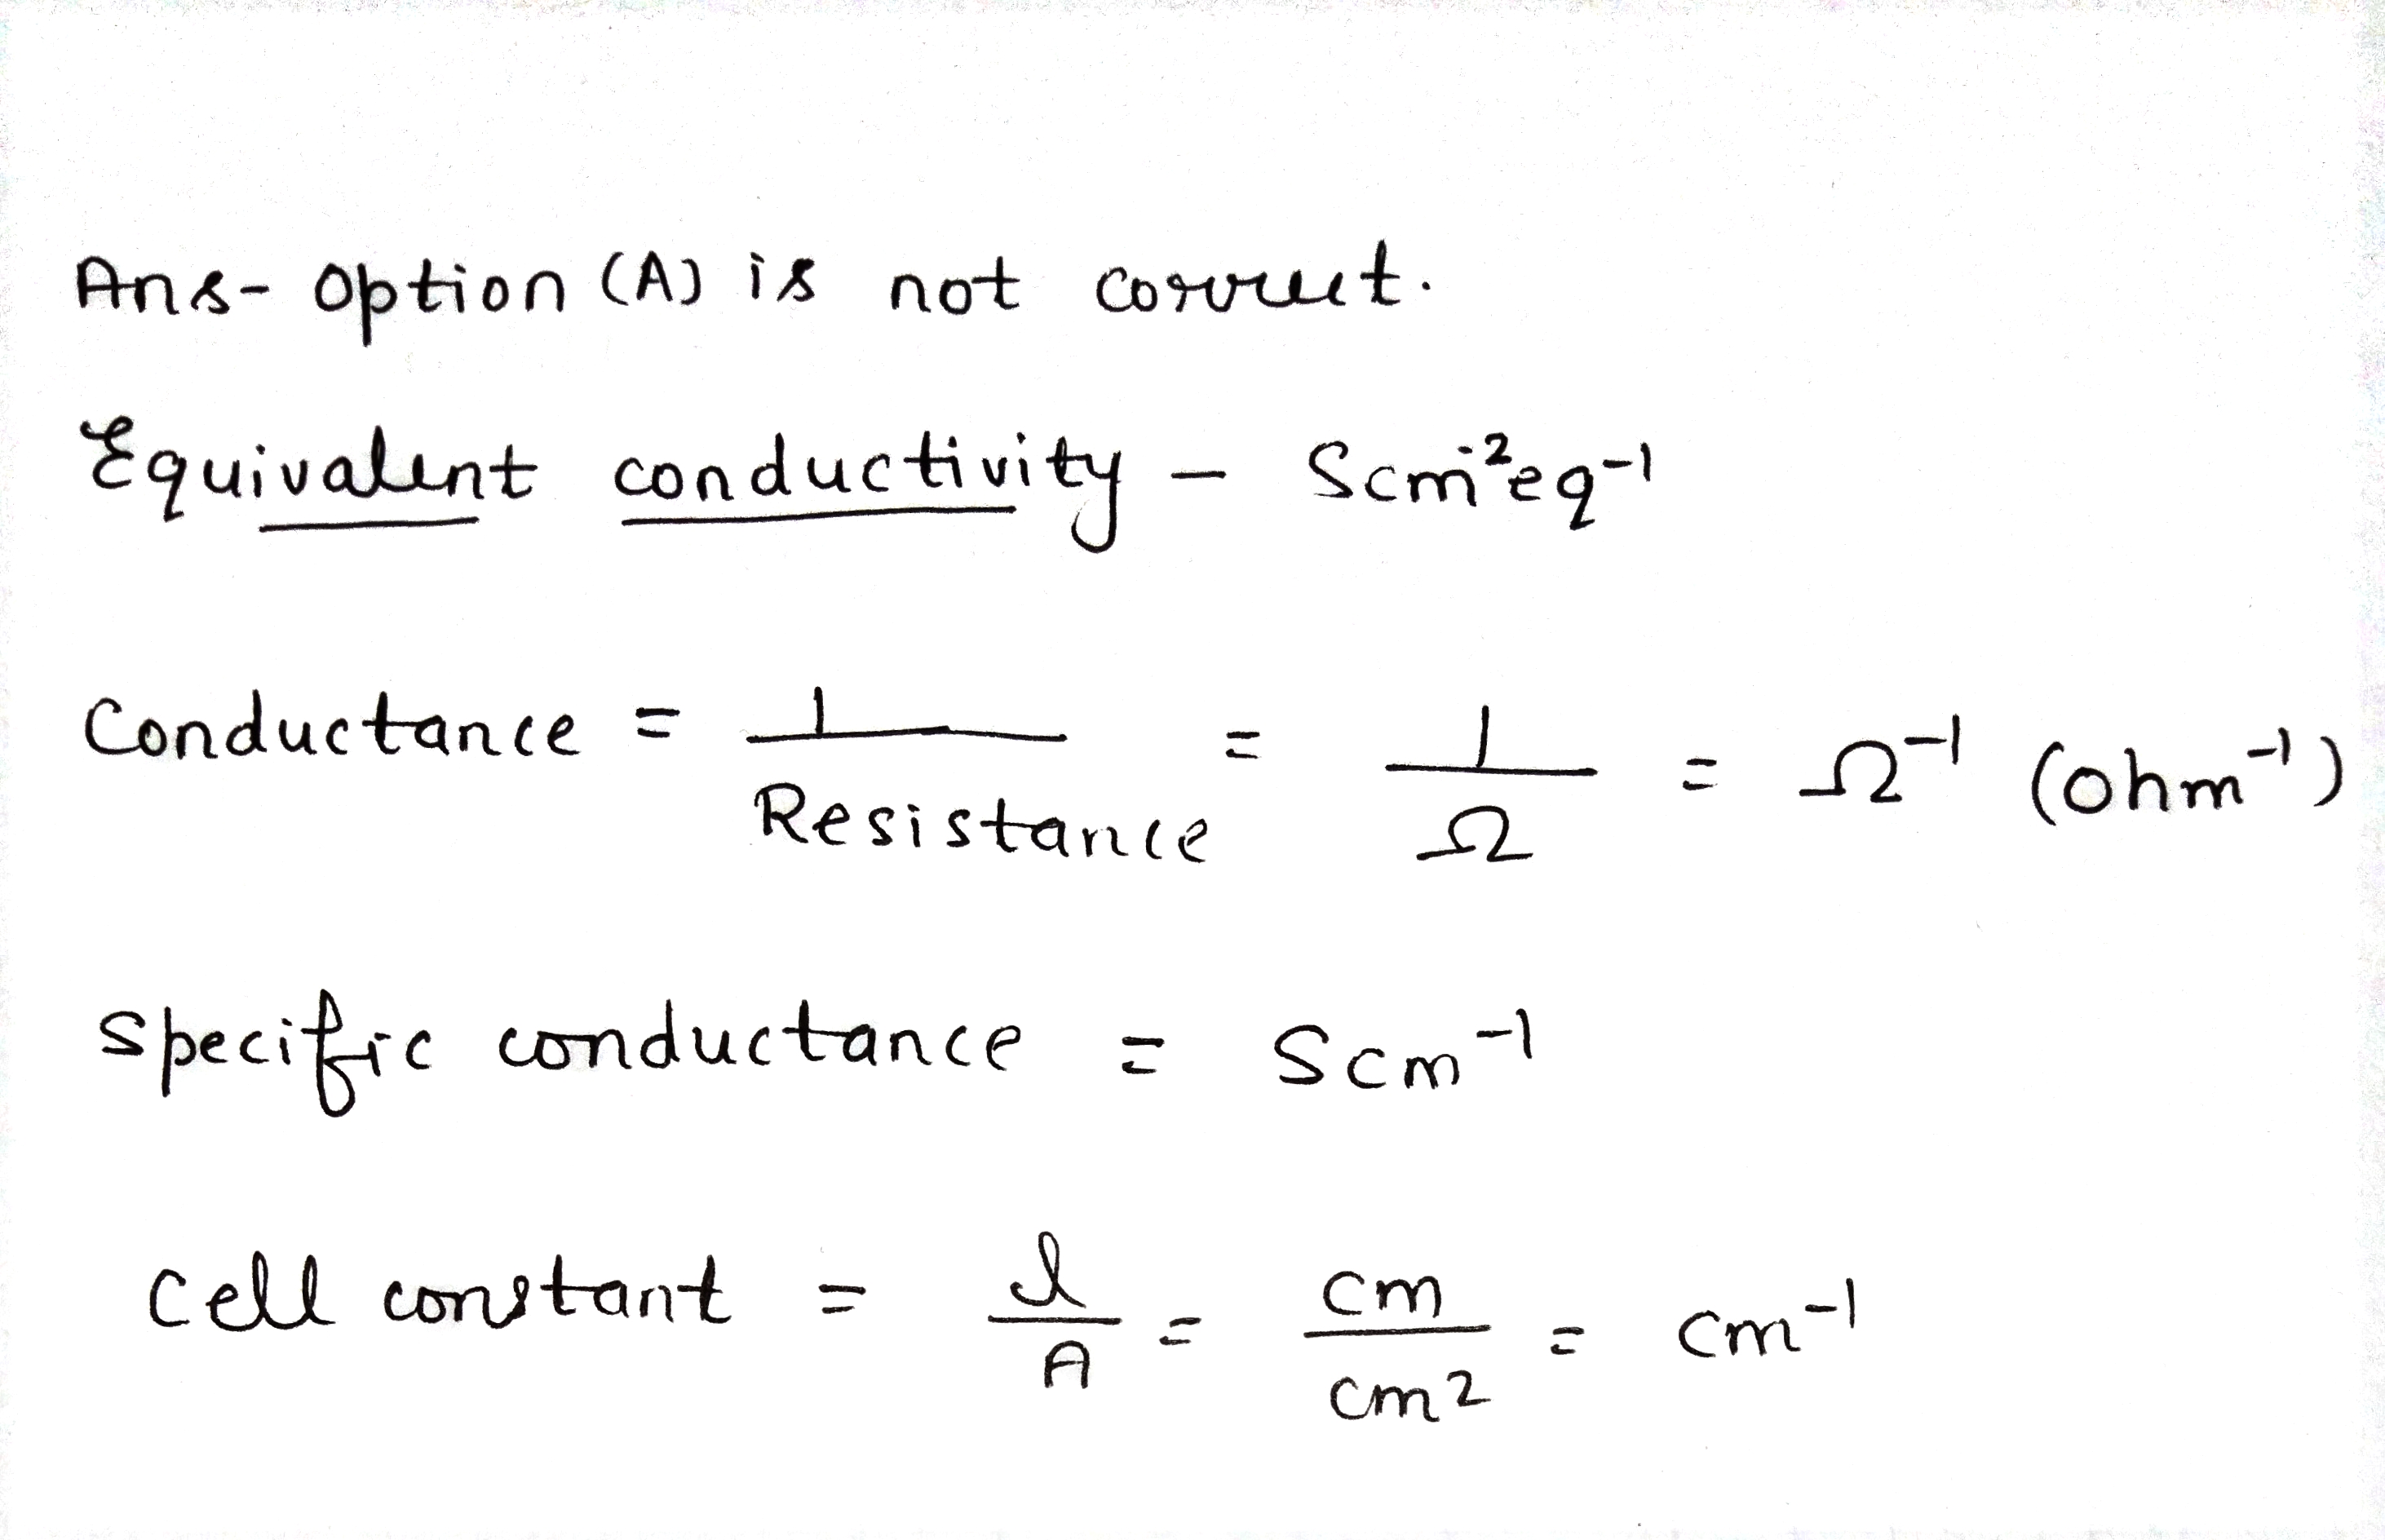 Ans- Option (A) is not correct.
Equivalent conductivity - Scm²eq⁻¹
Conductance = 1/Resistance = 1/Ω = Ω⁻¹ (ohm⁻¹)
Specific conductance = Scm⁻¹
Cell constant = l/A = cm/cm² = cm⁻¹